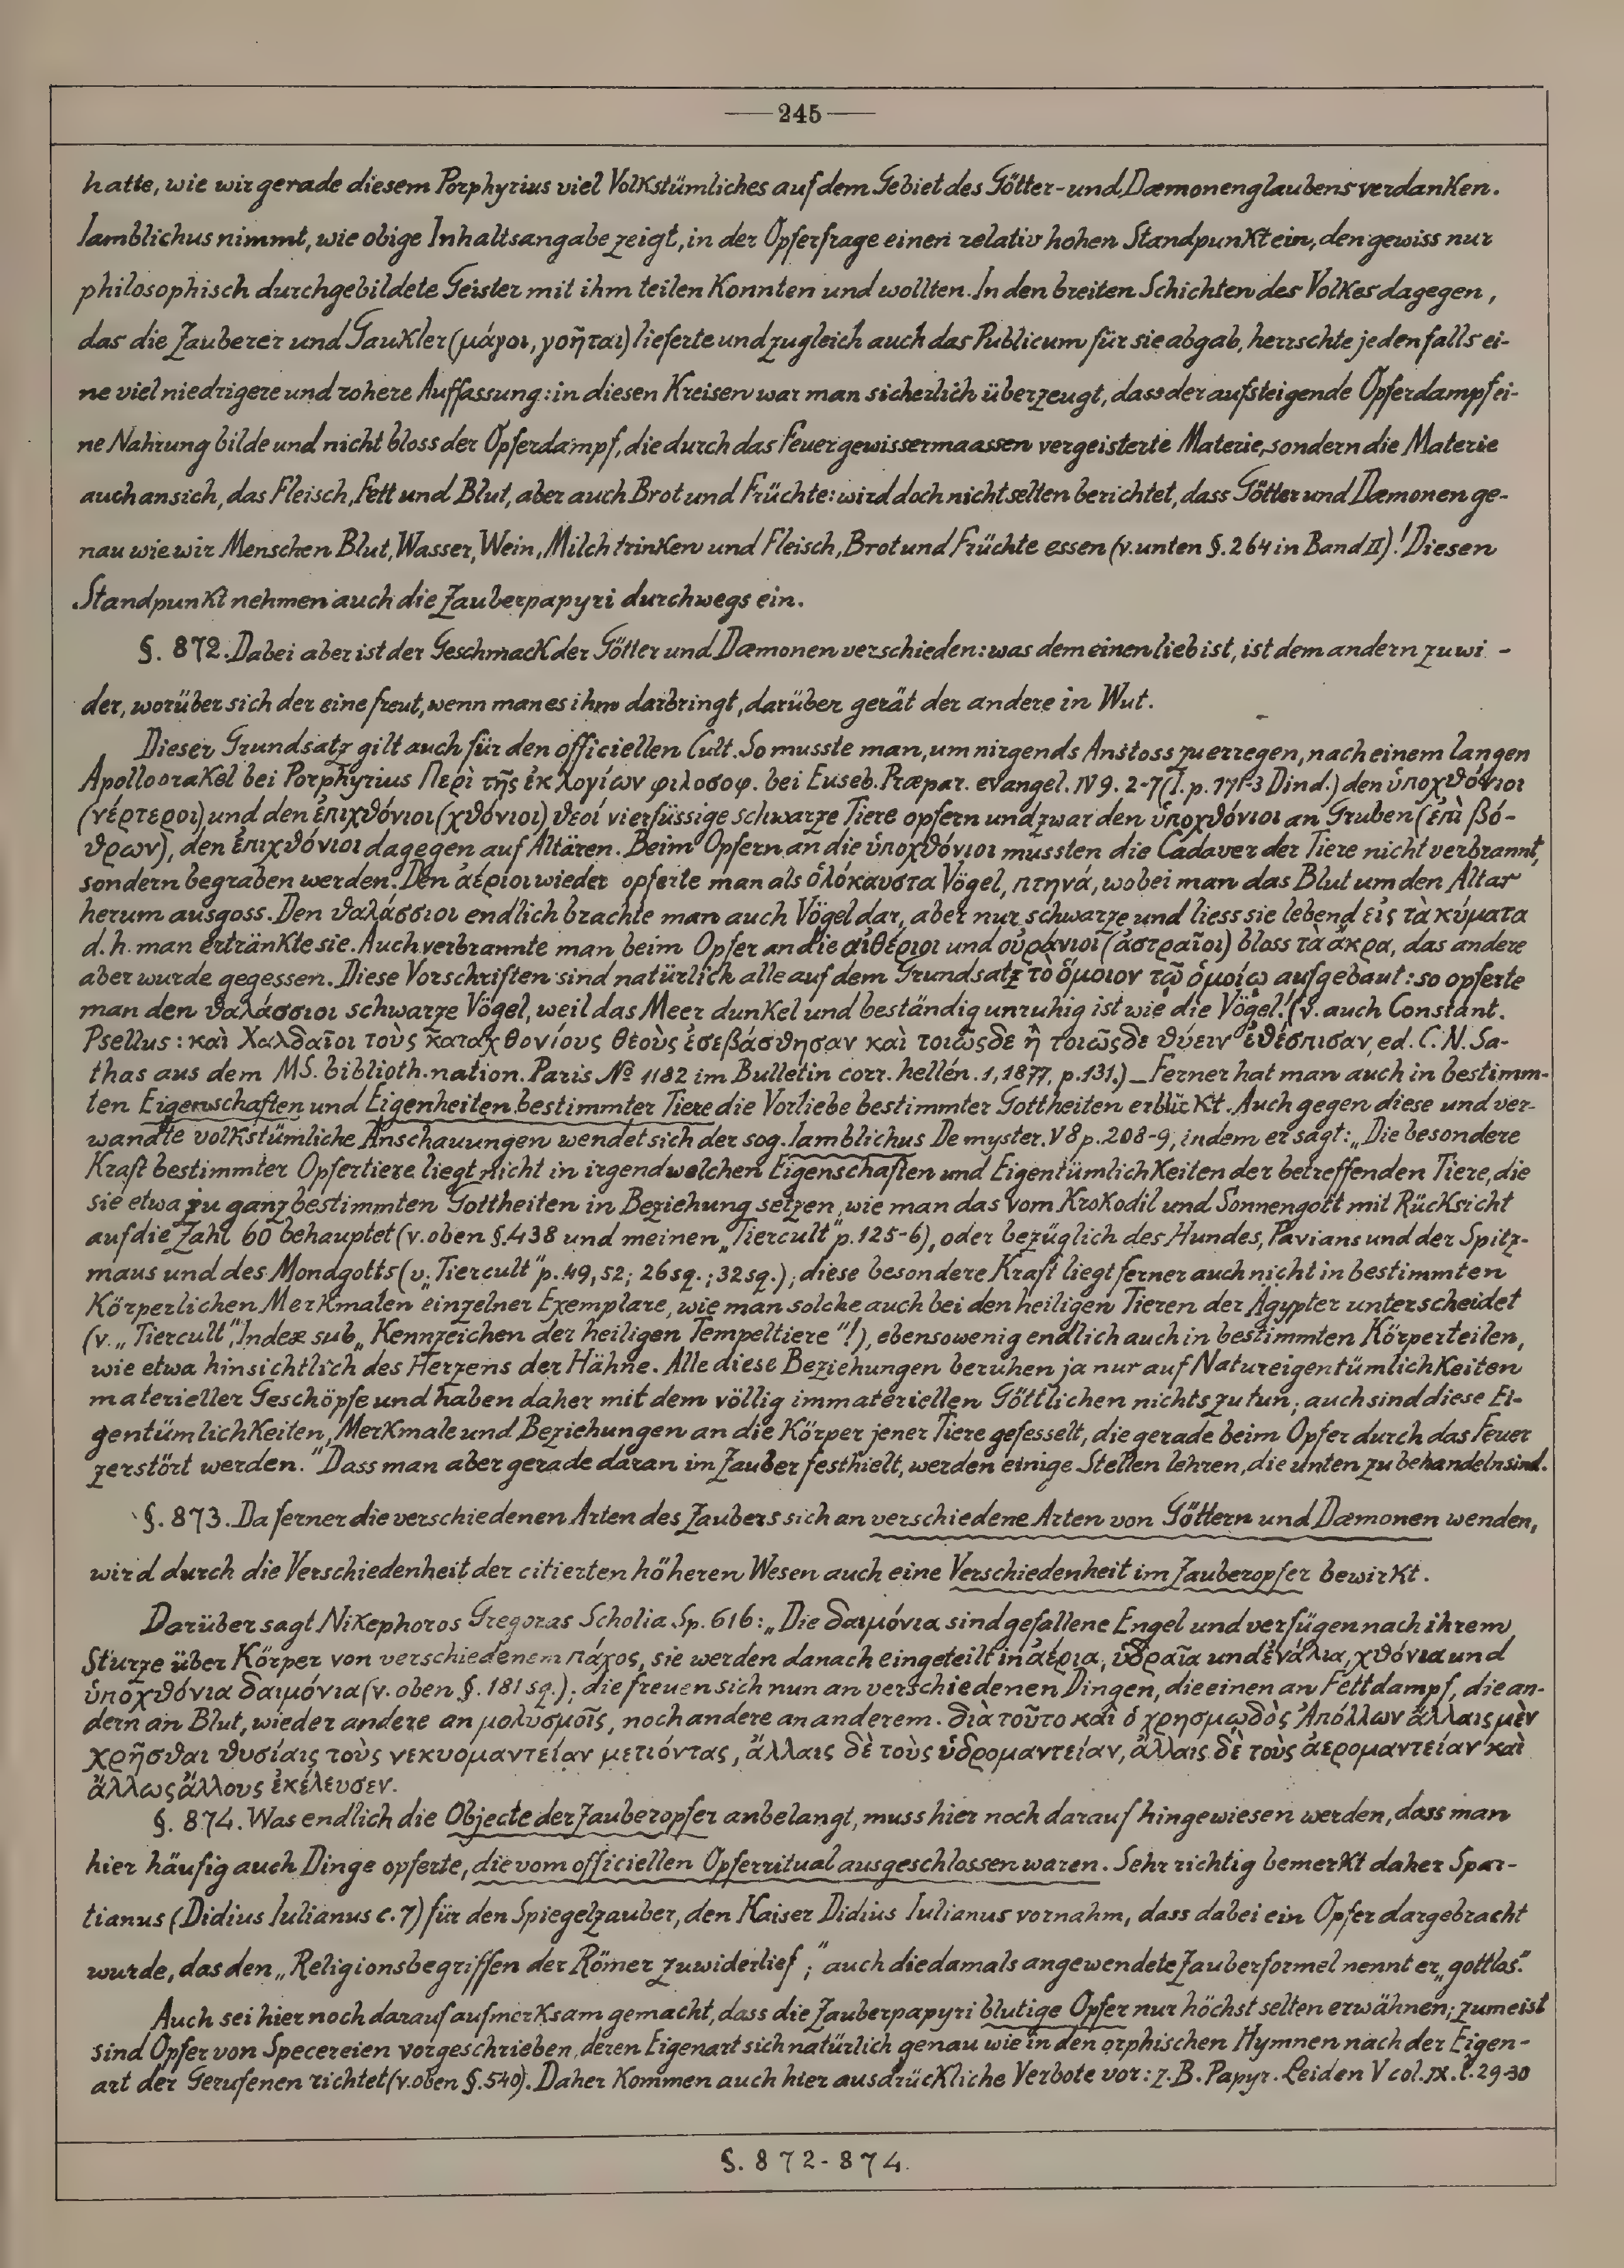 —245—
hatte, wie wir gerade diesem Porphyrius viel Volkstümliches auf dem Gebiet des Götter- und Dæmonenglaubens verdanken.
Iamblichus nimmt, wie obige Inhaltsangabe zeigt, in der Opferfrage einen relativ hohen Standpunkt ein, den gewiss nur
philosophisch durchgebildete Geister mit ihm teilen konnten und wollten. In den breiten Schichten des Volkes dagegen,
das die Zauberer und Gaukler (μάγοι, γοῆται) lieferte und zugleich auch das Publicum für sie abgab, herrschte jedenfalls ei-
ne viel niedrigere und rohere Auffassung: in diesen Kreisen war man sicherlich überzeugt, dass der aufsteigende Opferdampf ei-
ne Nahrung bilde und nicht bloss der Opferdampf, die durch das Feuer gewissermaassen vergeisterte Materie, sondern die Materie
auch an sich, das Fleisch, Fett und Blut, aber auch Brot und Früchte: wird doch nicht selten berichtet, dass Götter und Dæmonen ge-
nau wie wir Menschen Blut, Wasser, Wein, Milch trinken und Fleisch, Brot und Früchte essen (v. unten §. 264 in Band II)! Diesen
Standpunkt nehmen auch die Zauberpapyri durchwegs ein.
§. 872. Dabei aber ist der Geschmack der Götter und Dæmonen verschieden: was dem einen lieb ist, ist dem andern zuwi-
der, worüber sich der eine freut, wenn man es ihm darbringt, darüber gerät der andere in Wut.
Dieser Grundsatz gilt auch für den officiellen Cult. So musste man, um nirgends Anstoss zu erregen, nach einem langen
Apolloorakel bei Porphyrius Περὶ τῆς ἐκ λογίων φιλοσοφ. bei Euseb. Præpar. evangel. IV 9. 2-7 (I. p. 171-3 Dind.) den ὑποχθόνιοι
(νέρτεροι) und den ἐπιχθόνιοι (χθόνιοι) θεοί vierfüssige schwarze Tiere opfern und zwar den ὑποχθόνιοι an Gruben (ἐπὶ βό-
θρων), den ἐπιχθόνιοι dagegen auf Altären. Beim Opfern an die ὑποχθόνιοι mussten die Cadaver der Tiere nicht verbrannt,
sondern begraben werden. Den ἀέριοι wieder opferte man als ὁλόκαυστα Vögel, πτηνά, wobei man das Blut um den Altar
herum ausgoss. Den θαλάσσιοι endlich brachte man auch Vögel dar, aber nur schwarze und liess sie lebend εἰς τὰ κύματα
d. h. man ertränkte sie. Auch verbrannte man beim Opfer an die αἰθέριοι und οὐράνιοι (ἀστραῖοι) bloss τὰ ἄκρα, das andere
aber wurde gegessen. Diese Vorschriften sind natürlich alle auf dem Grundsatz τὸ ὅμοιον τῷ ὁμοίῳ aufgebaut: so opferte
man den θαλάσσιοι schwarze Vögel, weil das Meer dunkel und beständig unruhig ist wie die Vögel! (v. auch Constant.
Psellus: καὶ Χαλδαῖοι τοὺς καταχθονίους θεοὺς ἐσεβάσθησαν καὶ τοιῶςδε ἢ τοιῶςδε θύειν ἐθέσπισαν, ed. C. N. Sa-
thas aus dem MS. biblioth. nation. Paris № 1182 im Bulletin corr. hellén. 1, 1877, p. 131.) — Ferner hat man auch in bestimm-
ten Eigenschaften und Eigenheiten bestimmter Tiere die Vorliebe bestimmter Gottheiten erblickt. Auch gegen diese und ver-
wandte volkstümliche Anschauungen wendet sich der sog. Iamblichus De myster. V 8 p. 208-9, indem er sagt: „Die besondere
Kraft bestimmter Opfertiere liegt nicht in irgendwelchen Eigenschaften und Eigentümlichkeiten der betreffenden Tiere, die
sie etwa zu ganz bestimmten Gottheiten in Beziehung setzen, wie man das vom Krokodil und Sonnengott mit Rücksicht
auf die Zahl 60 behauptet (v. oben §. 438 und meinen „Tiercult“ p. 125-6), oder bezüglich des Hundes, Pavians und der Spitz-
maus und des Mondgotts (v. „Tiercult“ p. 49, 52; 26 sq.; 32 sq.); diese besondere Kraft liegt ferner auch nicht in bestimmten
körperlichen Merkmalen einzelner Exemplare, wie man solche auch bei den heiligen Tieren der Ägypter unterscheidet
(v. „Tiercult“, Index sub „Kennzeichen der heiligen Tempeltiere“!), ebensowenig endlich auch in bestimmten Körperteilen,
wie etwa hinsichtlich des Herzens der Hähne. Alle diese Beziehungen beruhen ja nur auf Natureigentümlichkeiten
materieller Geschöpfe und haben daher mit dem völlig immateriellen Göttlichen nichts zu tun; auch sind diese Ei-
gentümlichkeiten, Merkmale und Beziehungen an die Körper jener Tiere gefesselt, die gerade beim Opfer durch das Feuer
zerstört werden.“ Dass man aber gerade daran im Zauber festhielt, werden einige Stellen lehren, die unten zu behandeln sind.
§. 873. Da ferner die verschiedenen Arten des Zaubers sich an verschiedene Arten von Göttern und Dæmonen wenden,
wird durch die Verschiedenheit der citierten höheren Wesen auch eine Verschiedenheit im Zauberopfer bewirkt.
Darüber sagt Nikephoros Gregoras Scholia Sp. 616: „Die δαιμόνια sind gefallene Engel und verfügen nach ihrem
Sturze über Körper von verschiedenem πάχος, sie werden danach eingeteilt in ἀέρια, ὑδραῖα und ἐνάλια, χθόνια und
ὑποχθόνια δαιμόνια (v. oben §. 181 sq.); die freuen sich nun an verschiedenen Dingen, die einen an Fettdampf, die an-
dern an Blut, wieder andere an μολυσμοῖς, noch andere an anderem. διὰ τοῦτο καὶ ὁ χρησμῳδὸς Ἀπόλλων ἄλλαις μὲν
χρῆσθαι θυσίαις τοὺς νεκυομαντείαν μετιόντας, ἄλλαις δὲ τοὺς ὑδρομαντείαν, ἄλλαις δὲ τοὺς ἀερομαντείαν καὶ
ἄλλως ἄλλους ἐκέλευσεν.
§. 874. Was endlich die Objecte der Zauberopfer anbelangt, muss hier noch darauf hingewiesen werden, dass man
hier häufig auch Dinge opferte, die vom officiellen Opferritual ausgeschlossen waren. Sehr richtig bemerkt daher Spar-
tianus (Didius Iulianus c. 7) für den Spiegelzauber, den Kaiser Didius Iulianus vornahm, dass dabei ein Opfer dargebracht
wurde, das den „Religionsbegriffen der Römer zuwiderlief;“ auch die damals angewendete Zauberformel nennt er „gottlos“.
Auch sei hier noch darauf aufmerksam gemacht, dass die Zauberpapyri blutige Opfer nur höchst selten erwähnen; zumeist
sind Opfer von Specereien vorgeschrieben, deren Eigenart sich natürlich genau wie in den orphischen Hymnen nach der Eigen-
art der Gerufenen richtet (v. oben §. 540). Daher kommen auch hier ausdrückliche Verbote vor: z. B. Papyr. Leiden V col. IX. l. 29-30
§. 872-874.